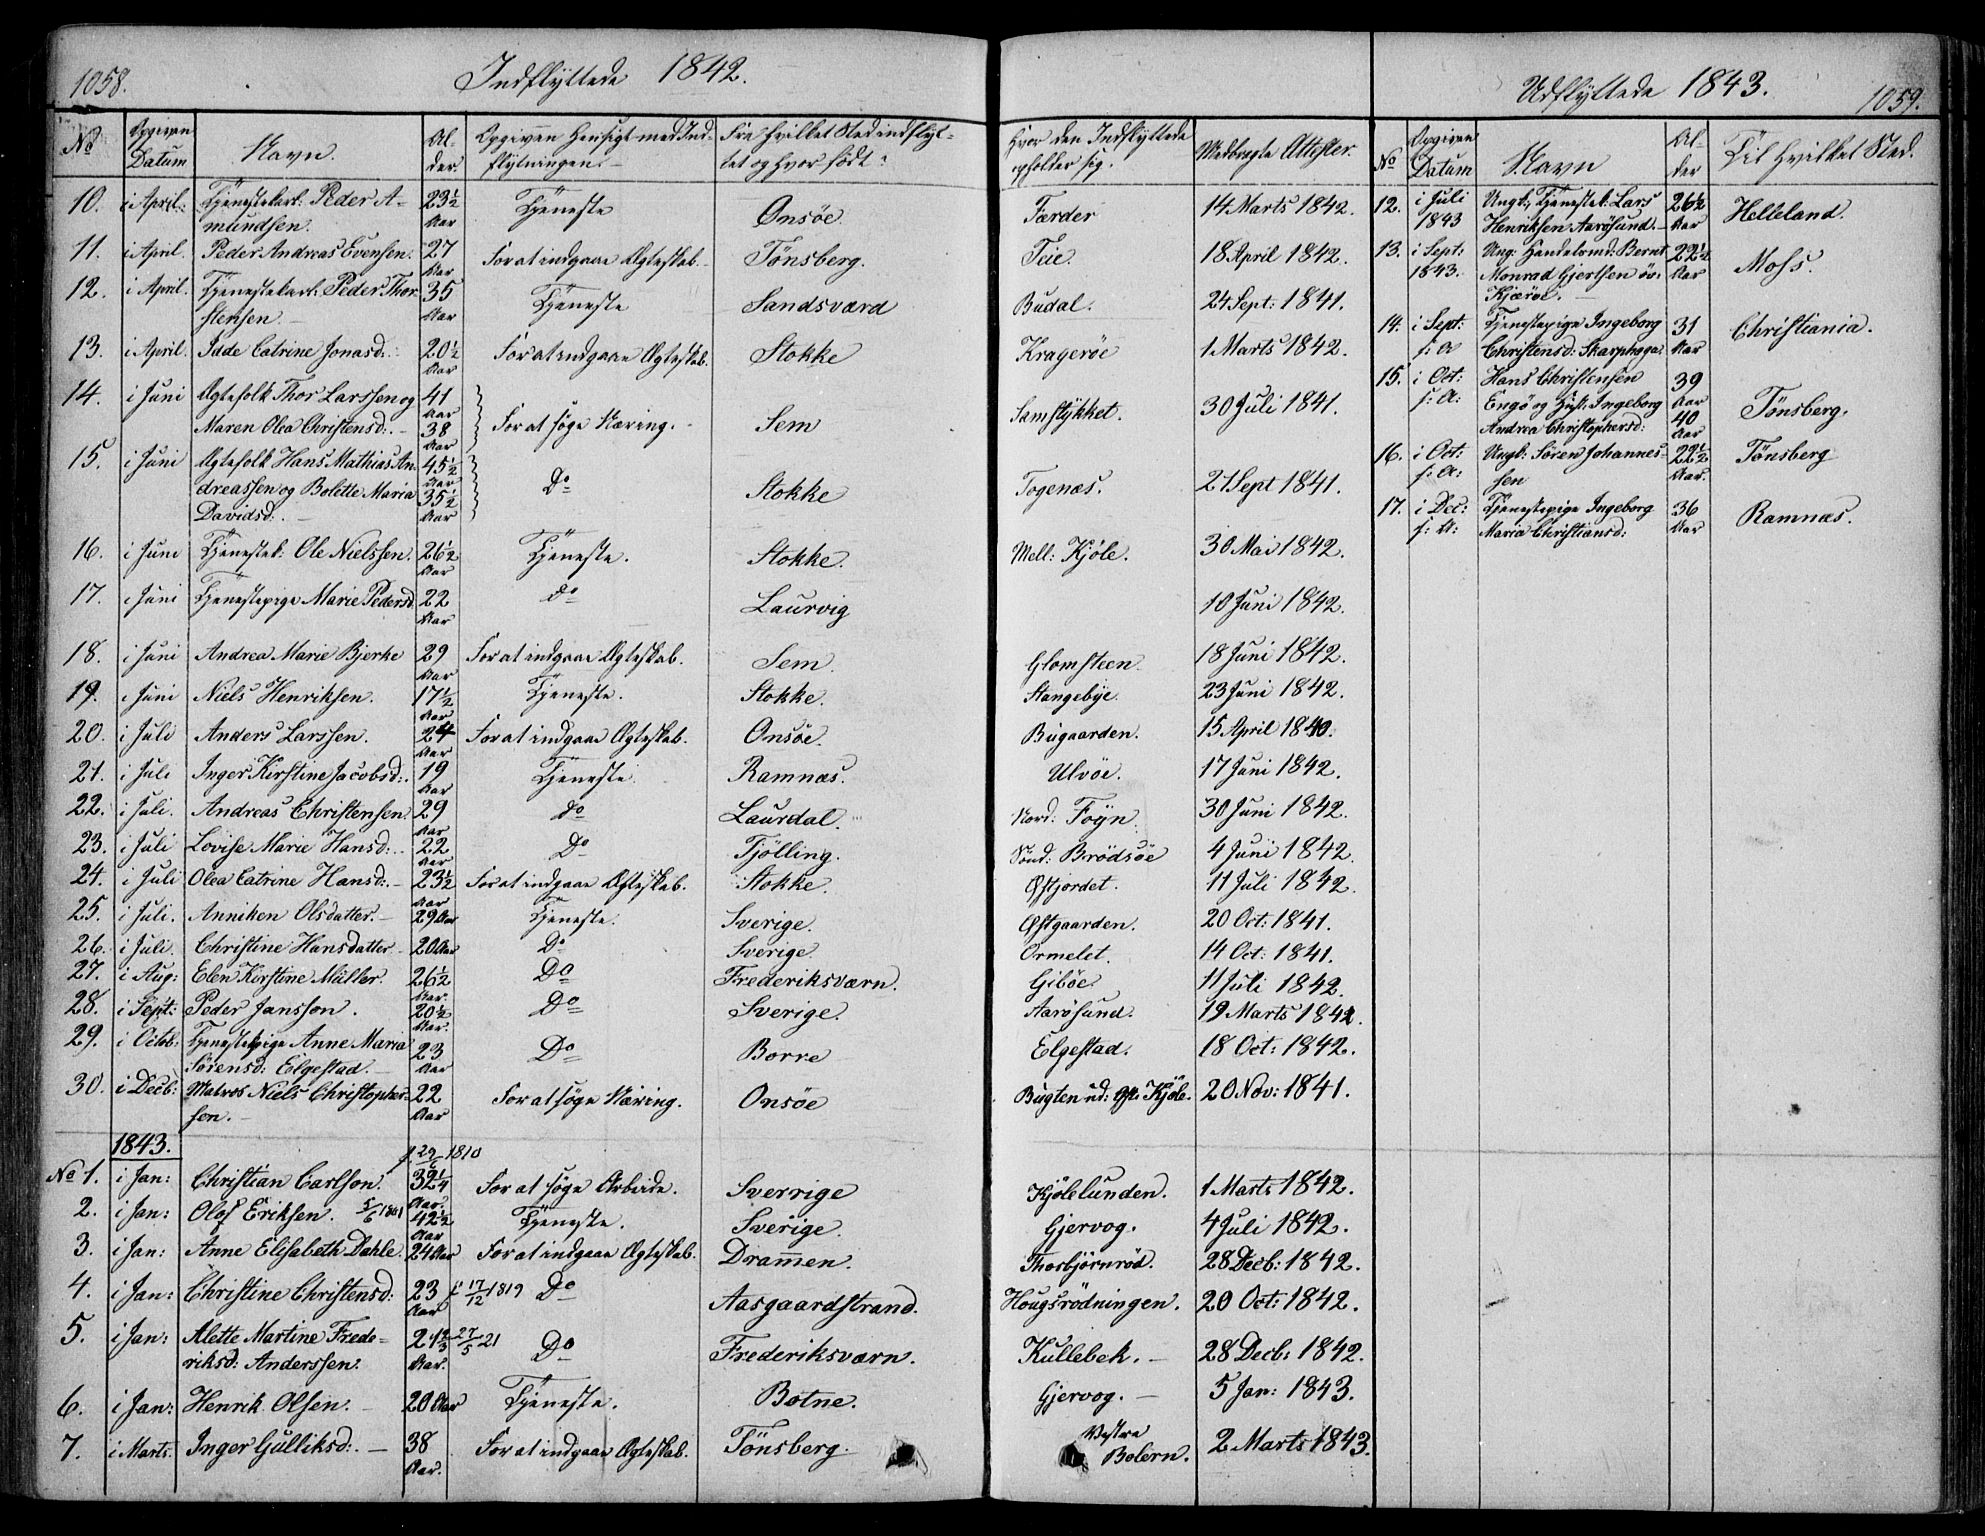 1058.
Indflyttede 1842.
No
Opgiven Datum
Navn.
Alder.
Opgiven Hensigt med Indflytningen.
Fra hvilket Sted indflyttet og hvor født?
Hvor den Indflyttede opholder sig.
Medbragte Attester.
10. i April. Tjenestekarl: Peder Amundsen. 23½ Aar Tjeneste Onsöe Færder 14 Marts 1842.
11. i April. Peder Andreas Evensen. 27 Aar For at indgaae Ægteskab. Tønsberg. Teie. 18 April 1842.
12. i April. Tjenestekarl: Peder Thorstensen. 35 Aar Tjeneste Sandsværd Budal. 24 Sept: 1841.
13. i April. Idde Catrine Jonasd: 20½ Aar For at indgaae Ægteskab. Stokke Krageröe 1 Marts 1842.
14. i Juni Ægtefolk Thor Larssen og Maren Olea Christensd: 41 Aar 38 Aar For at søge Næring. Sem Samstykket. 30 Juli 1841.
15. i Juni Ægtefolk Hans Mathias Andreassen og Bolette Maria Davidsd: 45½ Aar 35½ Aar Do Stokke Togenæs. 21 Sept 1841.
16. i Juni Tjenestek: Ole Nielssen. 26½ Aar Tjeneste. Stokke. Mell: Kjöle. 30 Mai 1842.
17. i Juni Tjenestepige Marie Pedersd. 22 Aar Do Laurvig 10 Juni 1842.
18. i Juni Andrea Marie Bjerke 29 Aar For at indgaae Ægteskab. Sem. Glomsteen. 18 Juni 1842.
19. i Juni Niels Henriksen. 17½ Aar Tjeneste. Stokke. Stangebye. 23 Juni 1842.
20. i Juli Anders Larssen. 24 Aar For at indgaae Ægteskab. Onsöe. Bugaarden. 15 April 1840.
21. i Juli Inger Kirstine Jacobsd: 19 Aar Tjeneste. Ramnæs. Ulvöe. 17 Juni 1842.
22. i Juli. Andreas Christensen. 29 Aar Do Laurdal. Nord: Föyn. 30 Juni 1842.
23. i Juli Lovise Marie Hansd: 22 Aar Do Tjölling. Sönd: Brödsöe 4 Juni 1842.
24. i Juli Olea Catrine Hansd: 23½ Aar For at indgaae Ægteskab. Stokke. Østjordet. 11 Juli 1842.
25. i Juli. Anniken Olsdatter. 29 Aar Tjeneste. Sverige. Østgaarden. 20 Oct: 1841.
26. i Juli. Christine Hansdatter 20 Aar Do Sverige. Ormelet. 14 Oct: 1841.
27. i Aug: Elen Kirstine Müller. 26½ Aar. Do Frederiksværn. Giböe. 11 Juli 1842.
28. i Sept: Peder Jansson. 20½ Aar. Do Sverige. Aarösund. 19 Marts 1842.
29. i Octob: Tjenestepige Anne Maria Sørensd: Elgestad. 23 Aar Do Borre Elgestad. 18 Oct: 1842.
30. i Decb: Matros Niels Christophersen. 22 Aar For at søge Næring. Onsöe Bugten ud: Øst: Kjöle. 20 Nov: 1841.
1843.
No 1. i Jan: Christian Carlson. f. 29/6 1810 32¼ Aar. For at søge Arbeide. Sverrige Kjölelunden. 1 Marts 1842.
2. i Jan: Olof Eriksen. 5/6 1801 42½ Aar Tjeneste. Sverige. Gjervog. 4 Juli 1842.
3. i Jan: Anne Elisabeth Dahle. 24 Aar For at indgaae Ægteskab. Dramen. Thorbjörnröd. 28 Decb: 1842.
4. i Jan: Christine Christensd: 23 Aar f 17/12 1819 Do Aasgaardstrand. Hougsrödningen. 20 Oct: 1842.
5. i Jan: Alette Martine Frederiksd: Anderssen. 21⅔ Aar. 27/5 21 Do Frederiksværn. Kullebek. 28 Decb: 1842.
6. i Jan: Henrik Olsen. 20 Aar Tjeneste. Botne. Gjervog. 5 Jan: 1843.
7. i Marts. Inger Gulliksd: 38 Aar. For at indgaae Ægteskab. Tönsberg. Vestre Bolern. 2 Marts 1843.
Udflyttede 1843.
1059.
No
Opgiven Datum
Navn
Alder
Til hvilket Sted.
12. i Juli 1843 Ungk: Tjenestek: Lars Henriksen Aarösund. 26½ Aar Helleland.
13. i Sept: 1843. Ung: Handelsmd: Bernt Monrad Gjertsen öv: Kjæröe. 22½ Aar Moss.
14. i Sept: s: A Tjenestepige Ingeborg Christensd: Skarphaga. 31 Aar Christiania.
15. i Oct: s: A: Hans Christensen Engö og Hust: Ingeborg Andrea Christophersd: 39 Aar 40 Aar Tönsberg.
16. i Oct: s: A: Ungk: Sören Johannessen 22½ Aar. Tönsberg
17. i Dec: s: A: Tjenestepige Ingeborg Maria Christiansd: 36 Aar Ramnæs.